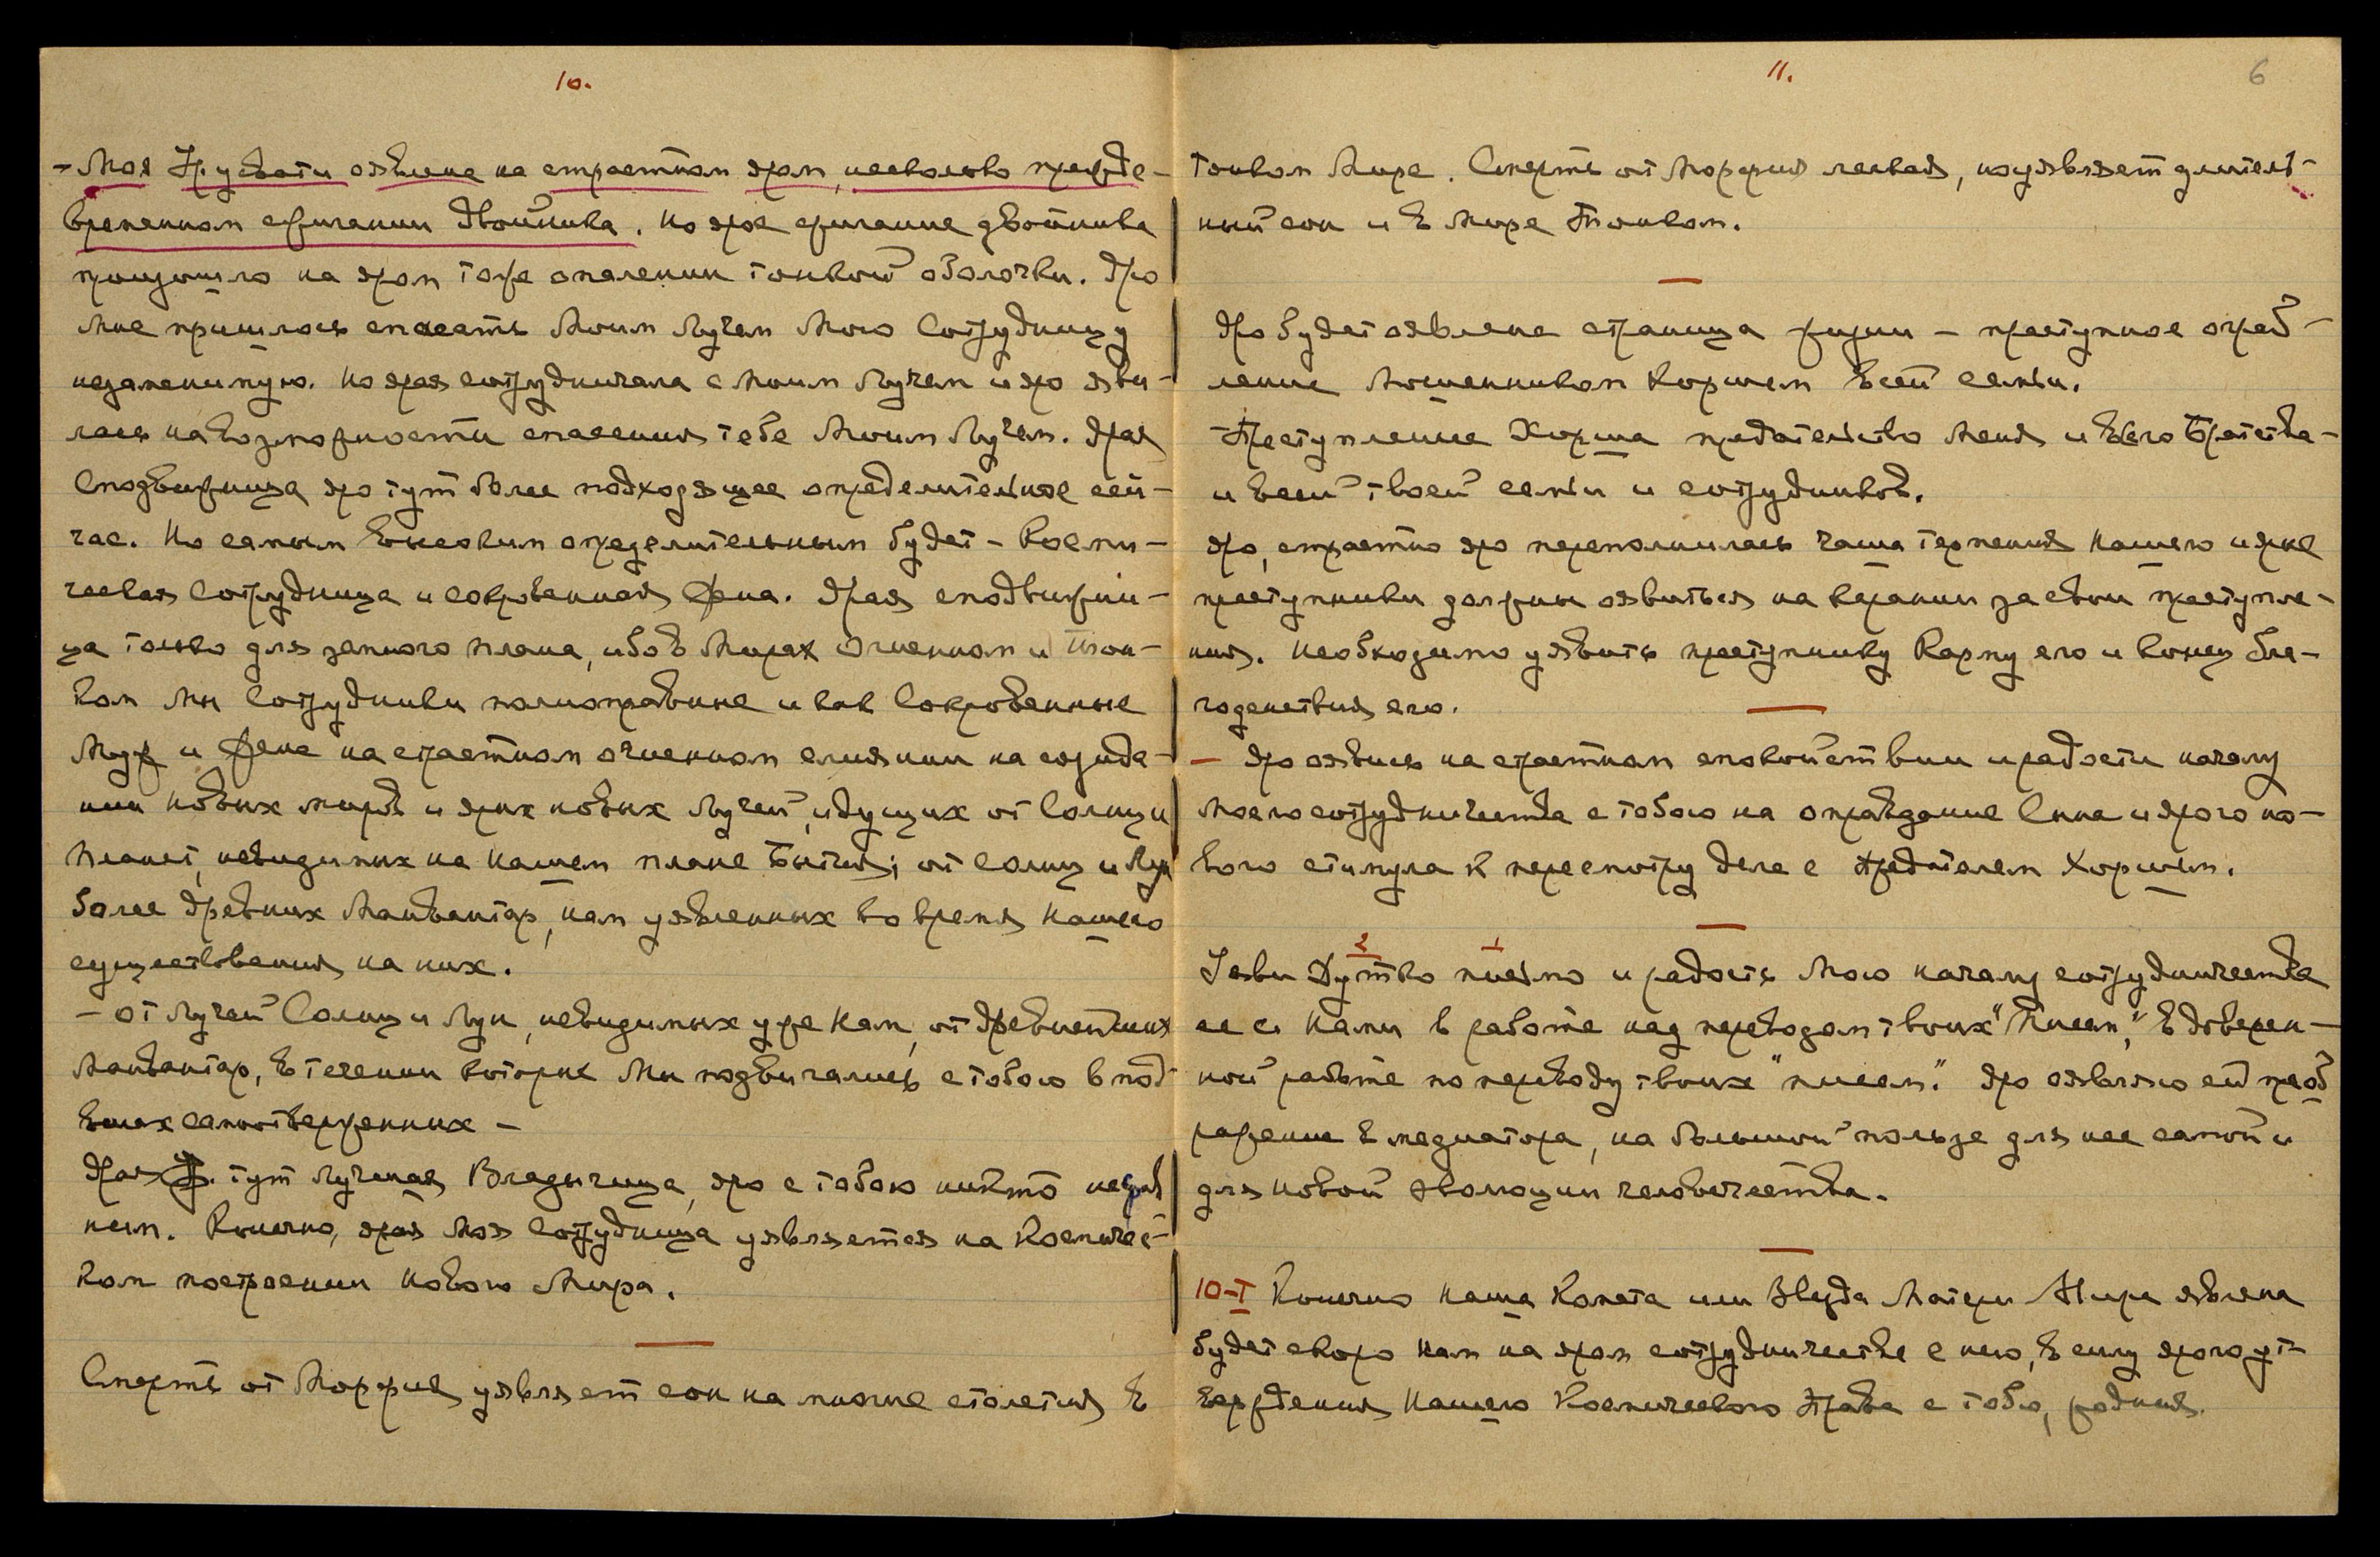 10.
- Моя Урувати оявлена на страстном яром, несколько прежде-
временном сжигании двойника. Но ярое сжигание двойника
произошло на яром тоже опалении тонкой оболочки. Яро
Мне пришлось спасать Моим Лучем Мою Сотрудницу
незаменимую. Но ярая сотрудничала с Моим Лучем и яро яви-
лась на возможности спасения тебе Моим Лучем. Ярая
Сподвижница яро тут более подходящее определительное сей-
час. Но самым высоким определительным будет - Косми-
ческая Сотрудница и сокровенная Жена. Ярая сподвижни-
ца только для земного плана, ибо в Мирах Огненном и Тон-
ком мы Сотрудники полноправные и как Сокровенные
Муж и Жена на страстном огненном слиянии на созида-
нии новых миров и ярых новых Лучей, идущих от Солнц и
планет, невидимых на нашем плане Бытия; от солнц и Лун
более древних Манвантар, нам уявленных во время Нашего
существования на них.
- от Лучей Солнц и Лун, невидимых уже Нам, от древнейших
Манвантар, в течении которых Мы подвигались с тобою в под-
вигах самоотверженных -
Ярая тут Лучшая Владычица, яро с тобою никто несрав
ним. Конечно, ярая Моя Сотрудница уявляется на Космичес-
ком построении Нового Мира.
Смерть от Морфия уявляет сон на многие столетия в
11.
6
Тонком Мире. Смерть от Морфия легкая, но уявляет длитель-
ный сон и в Мире Тонком.
Яро будет оявлена страница жизни - преступное ограб-
ление Мошенником Хоршем всей семьи.
Преступление Хорша предательство Меня и Всего Братства -
и всей твоей семьи и сотрудников.
Яро, страстно яро переполнилась чаша терпения Нашего и ярые
преступники должны оявиться на карании за свои преступле-
ния. Необходимо уявить преступнику Карму его и конец бла-
годенствия его.
- Яро оявись на страстном спокойствии и радости началу
Моего сотрудничества с тобою на оправдание Сына и ярого но-
вого стимула к пересмотру дела с предателем Хоршем.
2 1
Уяви Дутко письмо и радость Мою началу сотрудничества
ее с Нами в работе над переводом твоих "Писем," в доверен-
ной работе по переводу твоих "писем." Яро оявляю ей преоб
ражение в медиатора, на большой пользе для нее самой и
для новой эволюции человечества.
10-I Конечно Наша Комета или Звезда Матери Мира явлена
будет скоро Нам на яром сотрудничестве с нею, в силу ярого ут-
верждения Нашего Космического Права с тобою, родная.